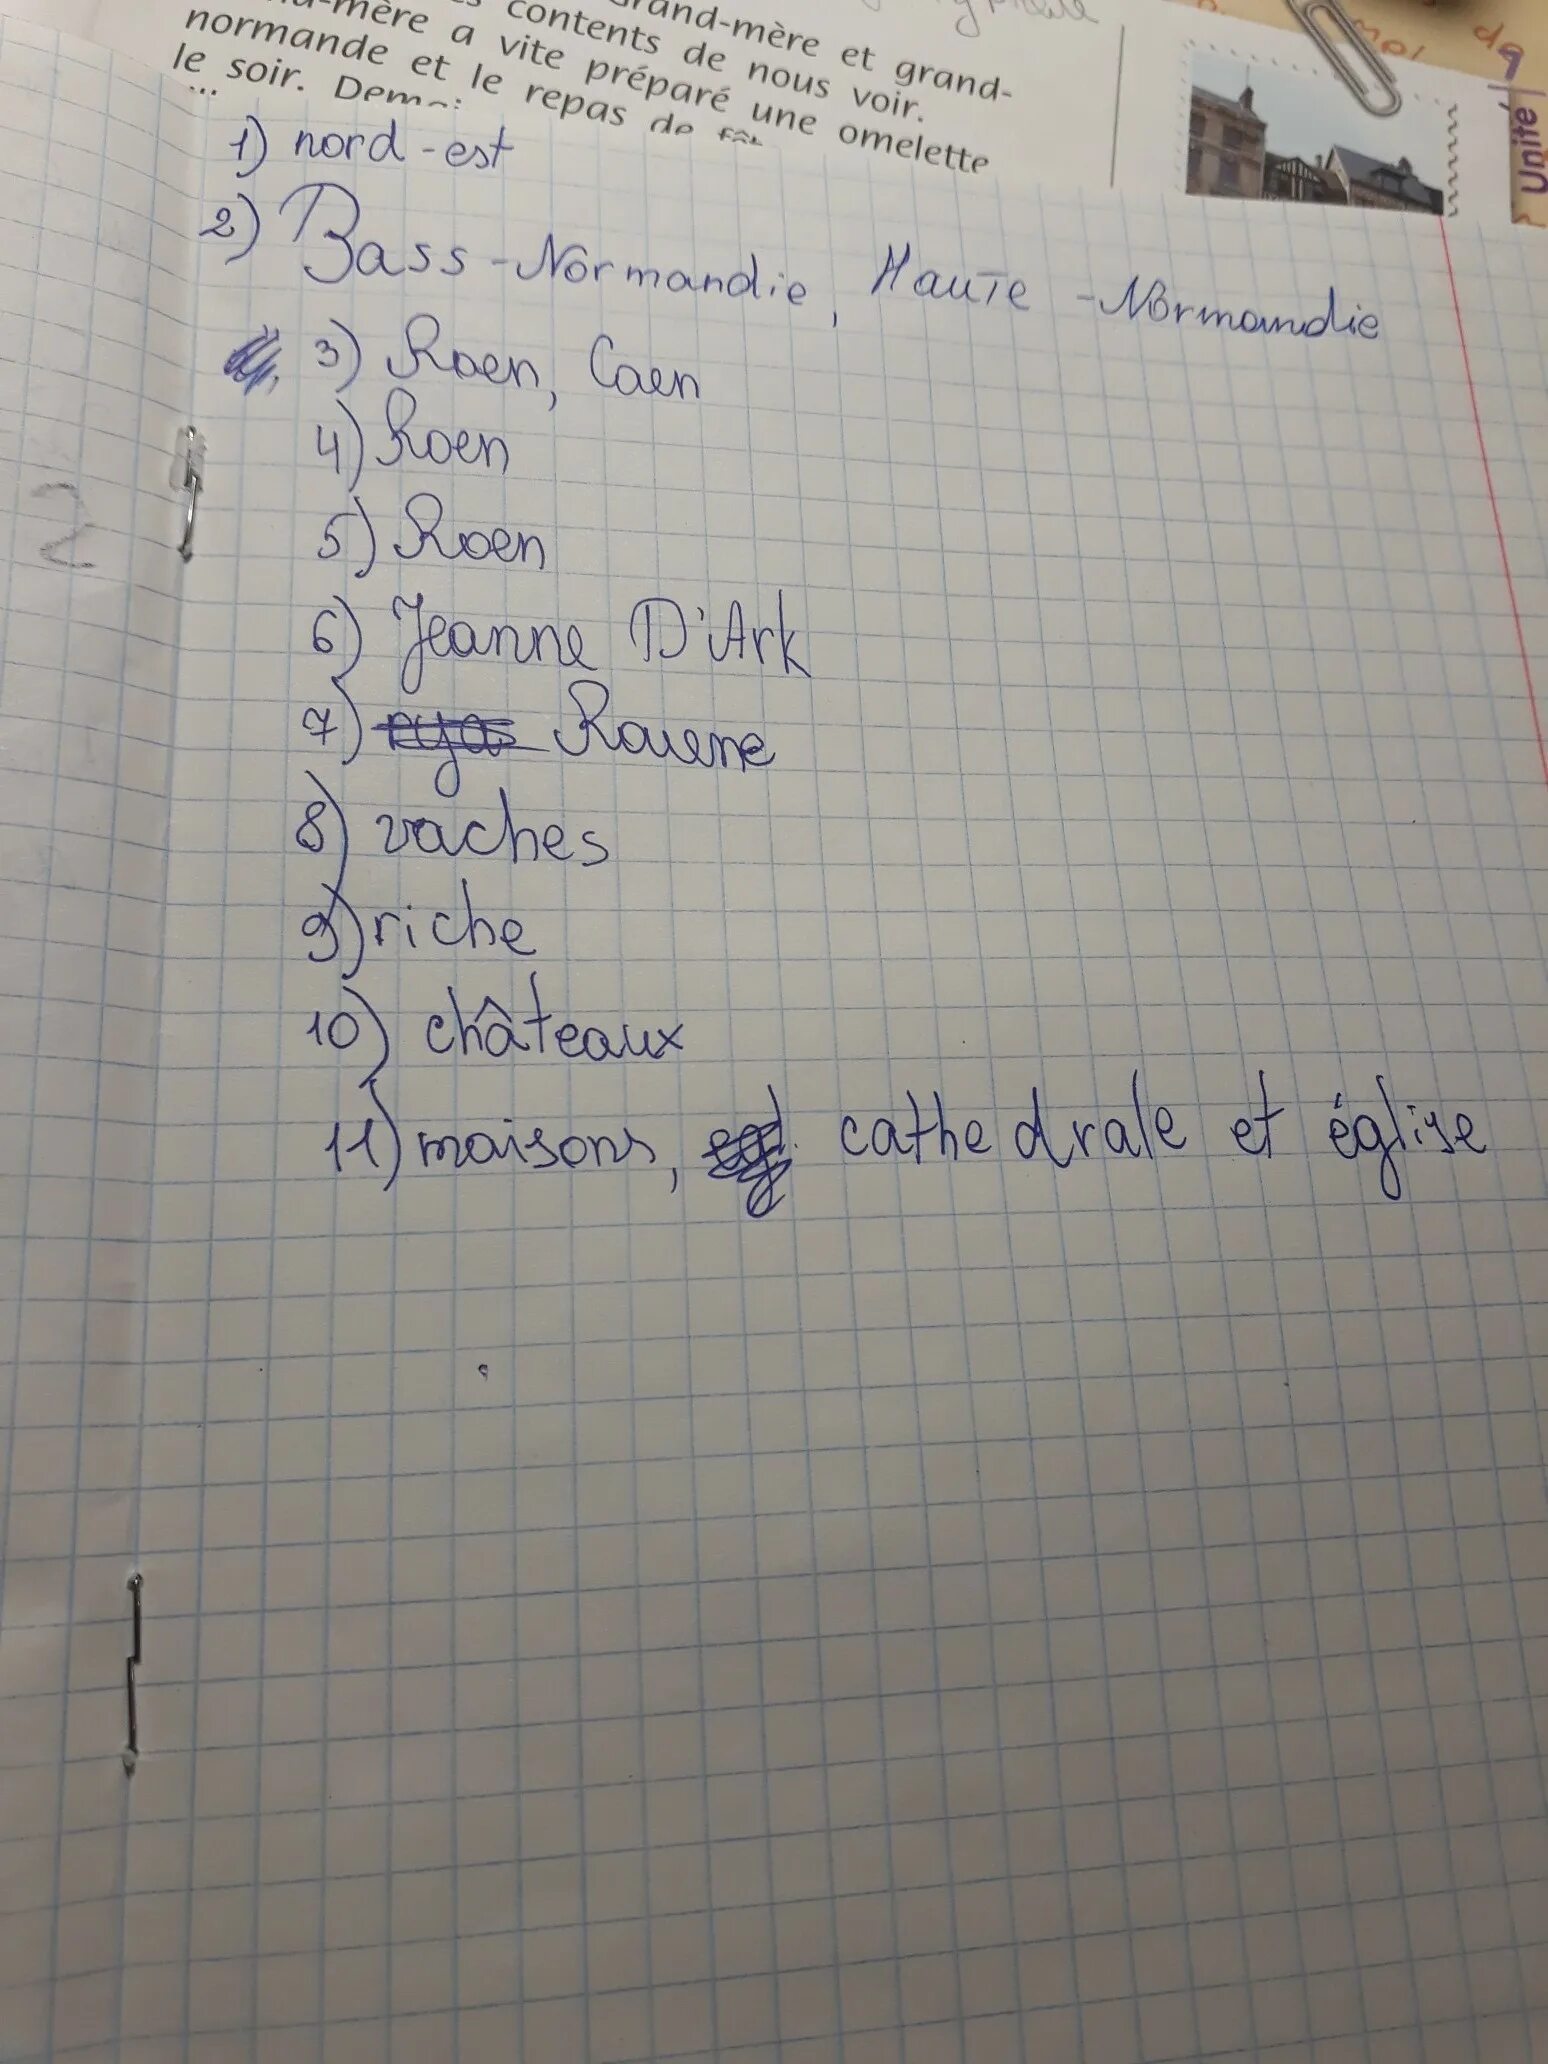 contents de nous voir.
grand-mère et grand-
mère a vite préparé une omelette
normande et le repas de
le soir.
...
Unité
1) nord-est
2) Bass-Normandie, Haute-Normandie
3) Roen, Caen
4) Roen
5) Roen
2
6) Jeanne D'Ark
7) Rouene
8) vaches
9) riche
10) châteaux
11) maisons, cathedrale et église